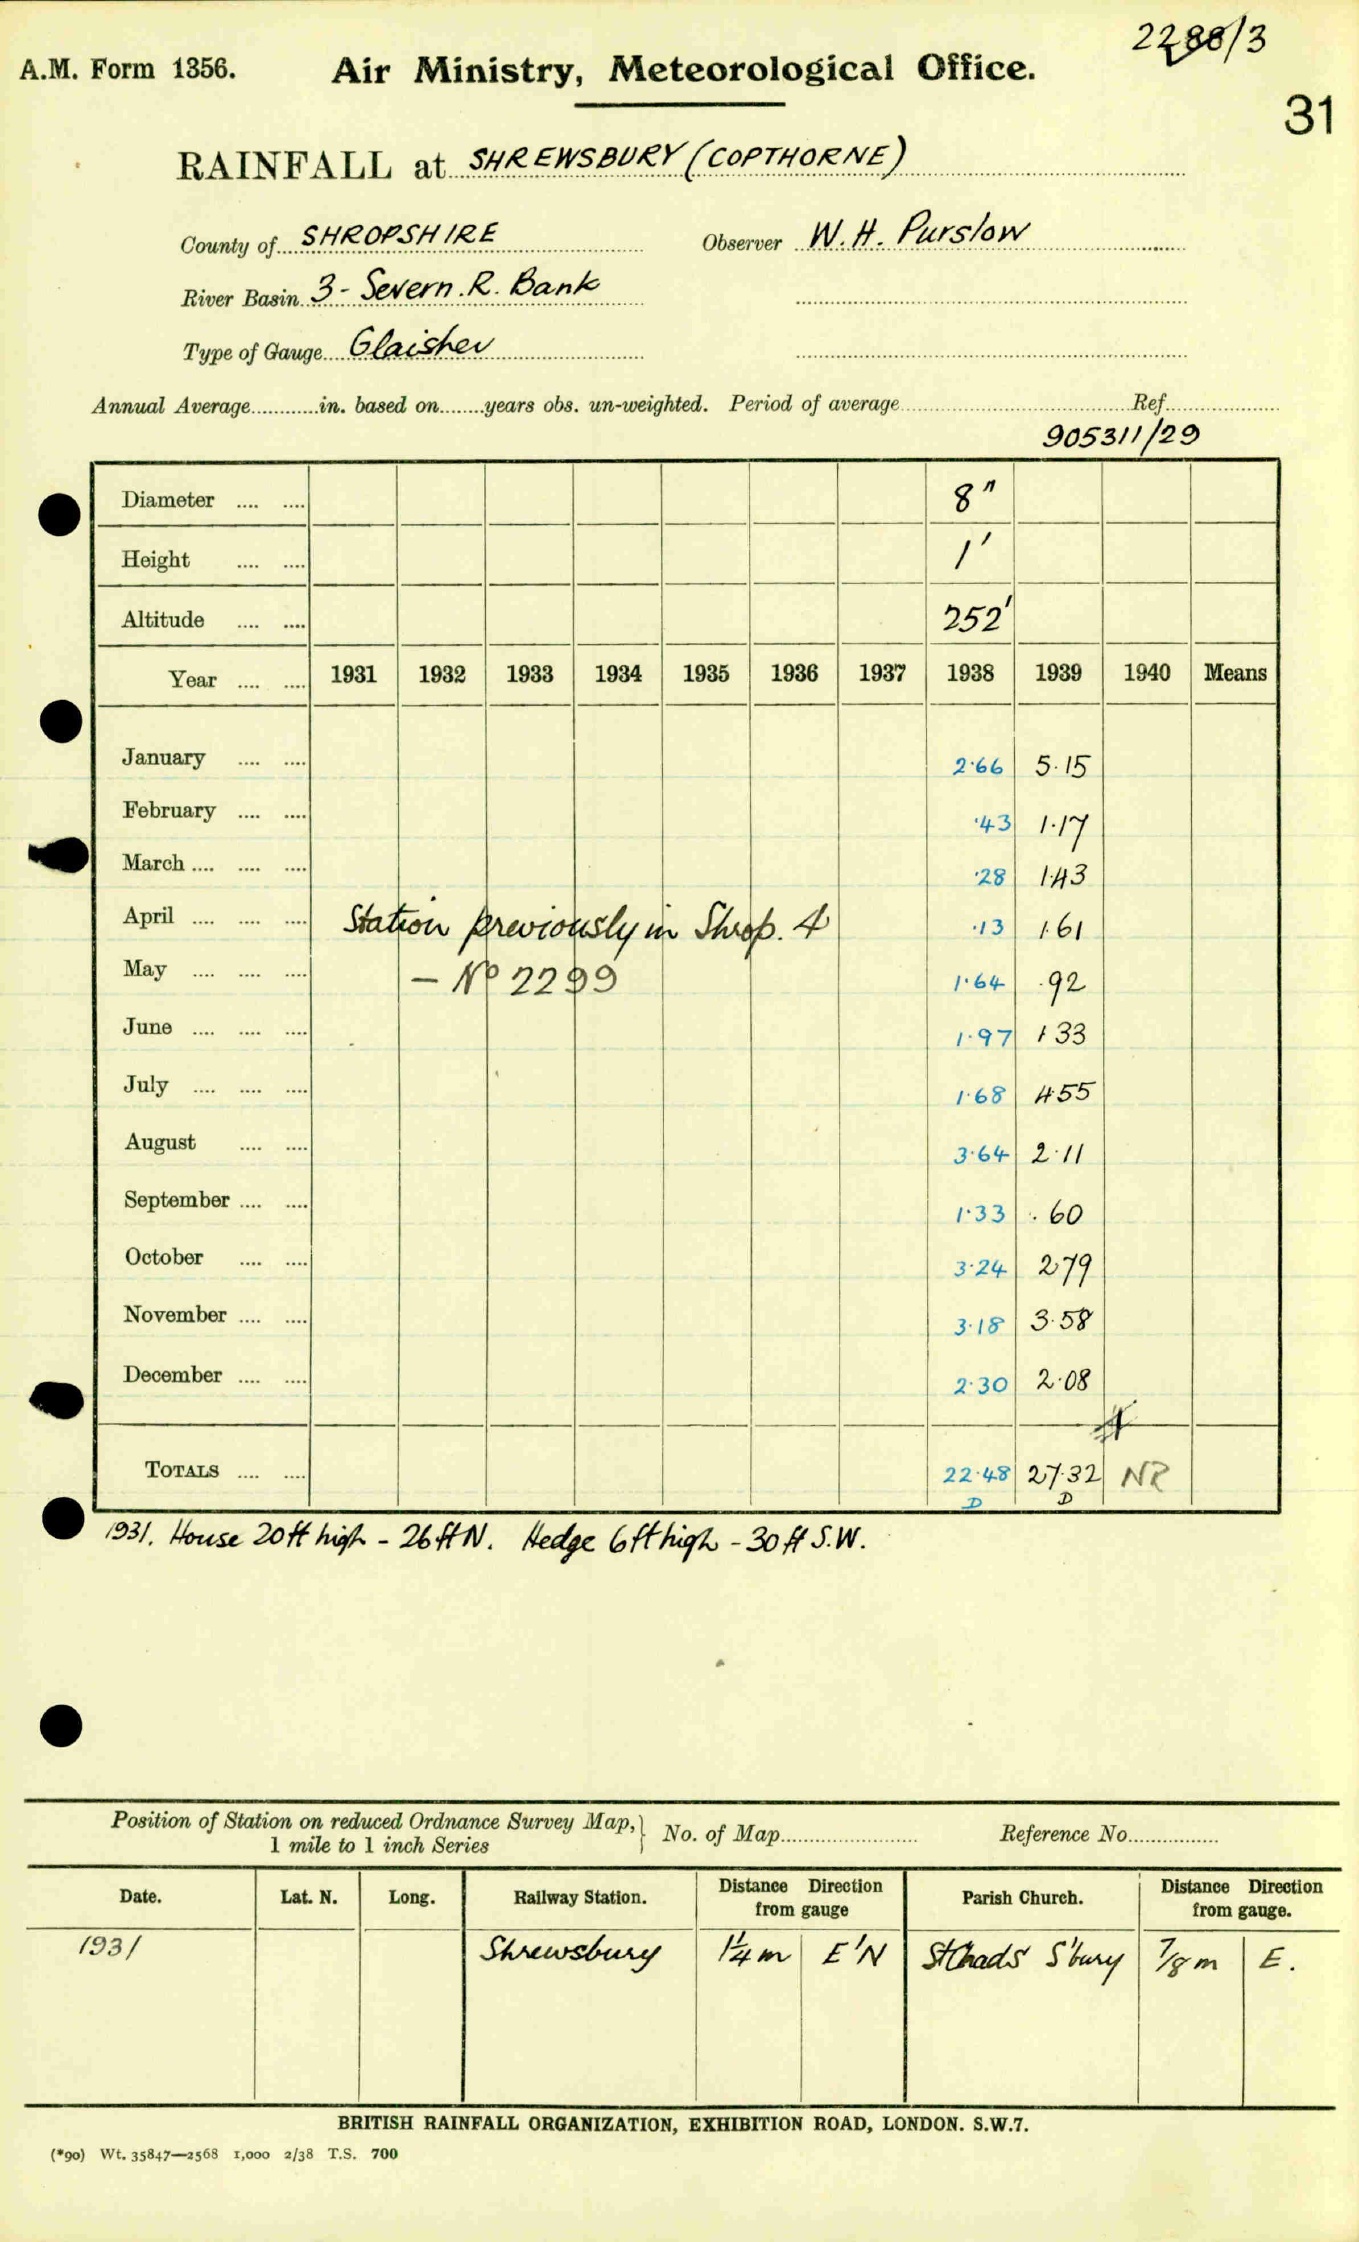 2288/3
A.M. Form 1356. Air Ministry, Meteorological Office.
31
RAINFALL at SHREWSBURY (COPTHORNE)
County of SHROPSHIRE Observer W. H. Purslow
River Basin 3 - Severn. R. Bank
Type of Gauge Glaisher
Annual Average............in. based on........years obs. un-weighted. Period of average.................... Ref....................
905311/29
Diameter .... .... 8"
Height .... .... 1'
Altitude .... .... 252'
Year .... .... 1931 1932 1933 1934 1935 1936 1937 1938 1939 1940 Means
January .... .... 2.66 5.15
February .... .... .43 1.17
March .... .... .... .28 1.43
April .... .... .... Station previously in Shrop. 4 .13 1.61
May .... .... .... – No 2299 1.64 .92
June .... .... .... 1.97 1.33
July .... .... .... 1.68 4.55
August .... .... 3.64 2.11
September .... .... 1.33 .60
October .... .... 3.24 2.79
November .... .... 3.18 3.58
December .... .... 2.30 2.08
TOTALS .... .... 22.48 27.32 NR
D D
1931. House 20 ft high - 26 ft N. Hedge 6 ft high - 30 ft S.W.
Position of Station on reduced Ordnance Survey Map, } No. of Map........................ Reference No................
1 mile to 1 inch Series
Date. Lat. N. Long. Railway Station. Distance Direction from gauge Parish Church. Distance Direction from gauge.
1931 Shrewsbury 1¼ m E'N St Chads S'bury 7/8 m E.
BRITISH RAINFALL ORGANIZATION, EXHIBITION ROAD, LONDON. S.W.7.
(*90) Wt. 35847—2568 1,000 2/38 T.S. 700